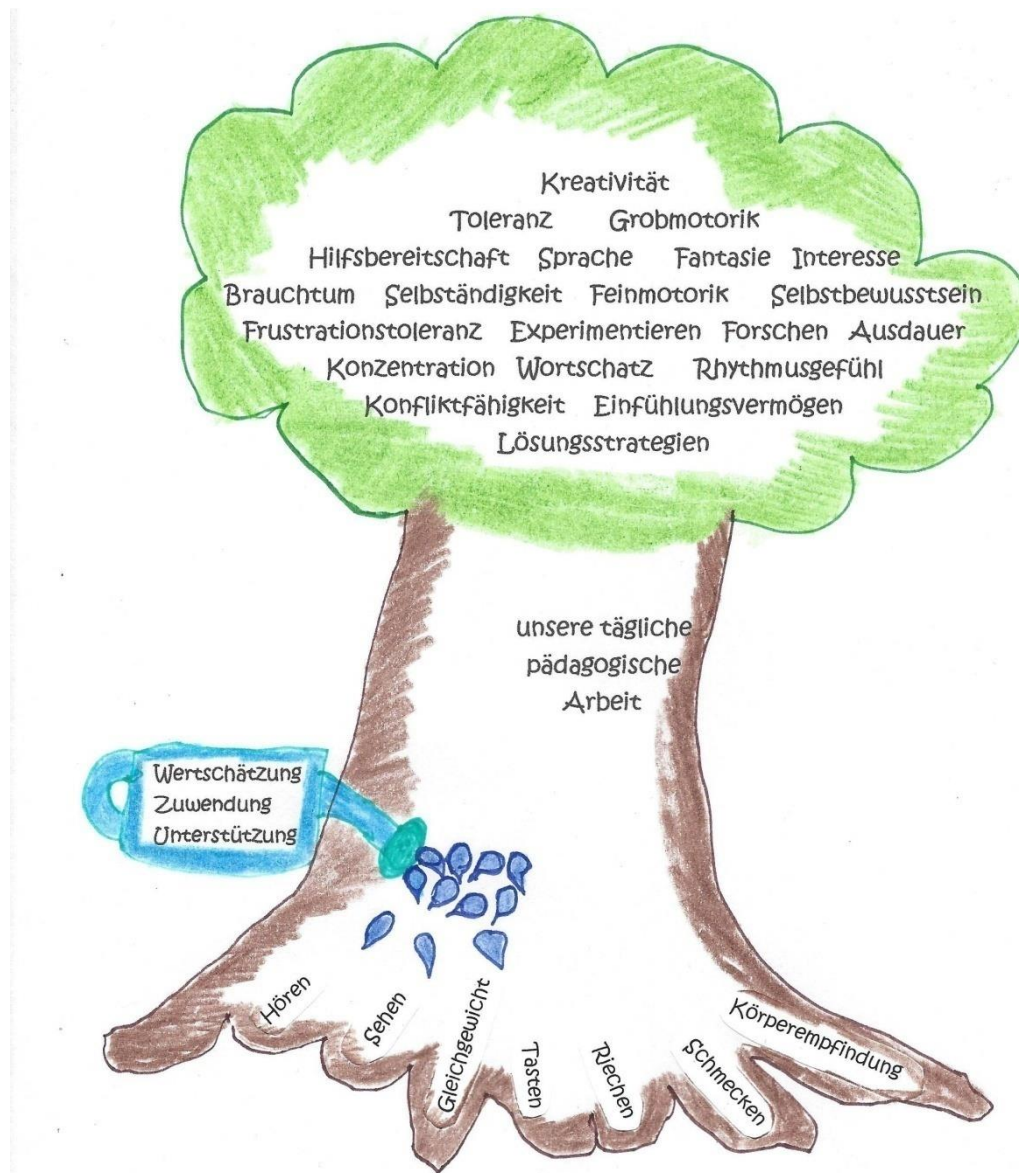 Kreativität
Toleranz Grobmotorik
Hilfsbereitschaft Sprache Fantasie Interesse
Brauchtum Selbständigkeit Feinmotorik Selbstbewusstsein
Frustrationstoleranz Experimentieren Forschen Ausdauer
Konzentration Wortschatz Rhythmusgefühl
Konfliktfähigkeit Einfühlungsvermögen
Lösungsstrategien
unsere tägliche
pädagogische
Arbeit
Wertschätzung
Zuwendung
Unterstützung
Hören
Sehen
Gleichgewicht
Tasten
Riechen
Schmecken
Körperempfindung